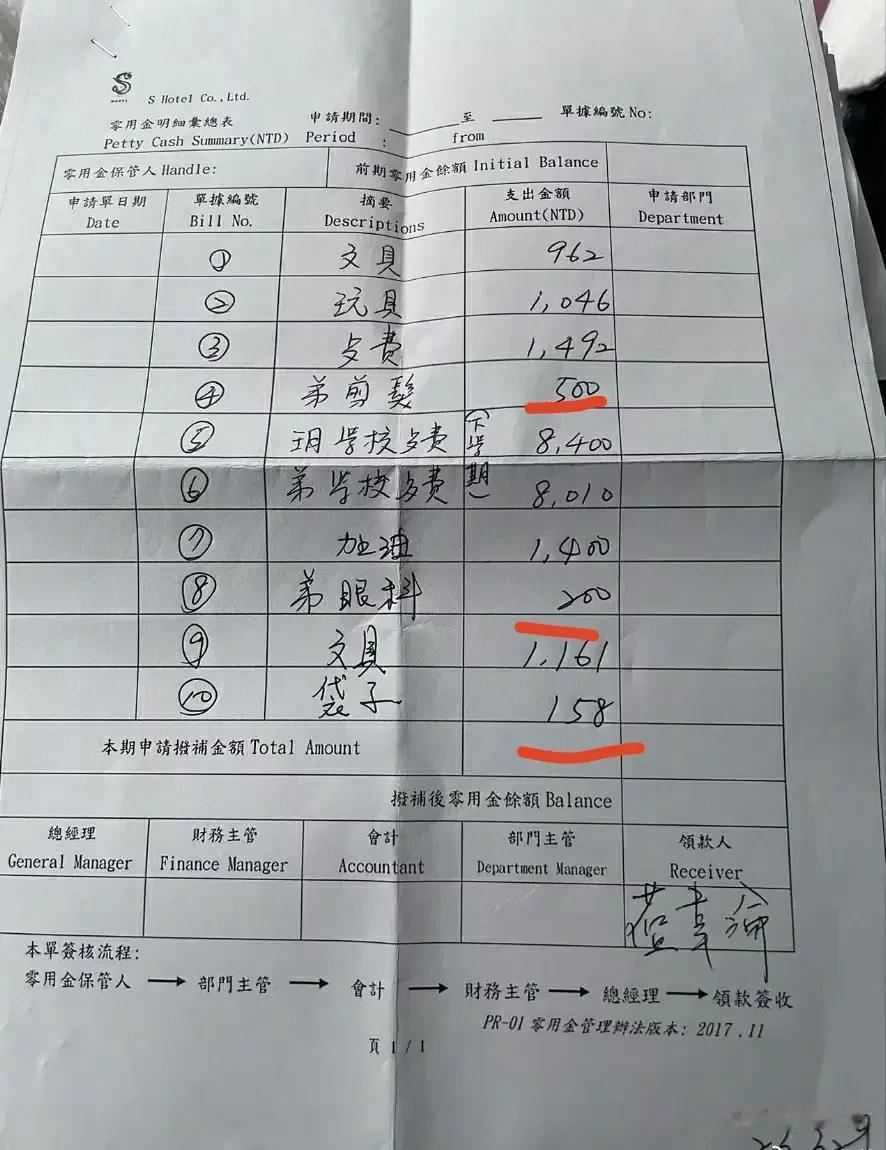 S
HOTEL
S Hotel Co.,Ltd.
零用金明細彙總表 申請期間: 至 單據編號 No:
Petty Cash Summary(NTD) Period : from
零用金保管人 Handle: 前期零用金餘額 Initial Balance
申請單日期 單據編號 摘要 支出金額 申請部門
Date Bill No. Descriptions Amount(NTD) Department
① 文具 962
② 玩具 1,046
③ 占費 1,492
④ 弟剪髮 500
⑤ 玥學校占費 (下學期) 8,400
⑥ 弟學校占費 8,010
⑦ 加油 1,400
⑧ 弟眼科 200
⑨ 文具 1,161
⑩ 袋子 158
本期申請撥補金額 Total Amount
撥補後零用金餘額 Balance
總經理 財務主管 會計 部門主管 領款人
General Manager Finance Manager Accountant Department Manager Receiver
本單簽核流程:
零用金保管人 → 部門主管 → 會計 → 財務主管 → 總經理 → 領款簽收
PR-01 零用金管理辦法版本: 2017.11
頁 1 / 1